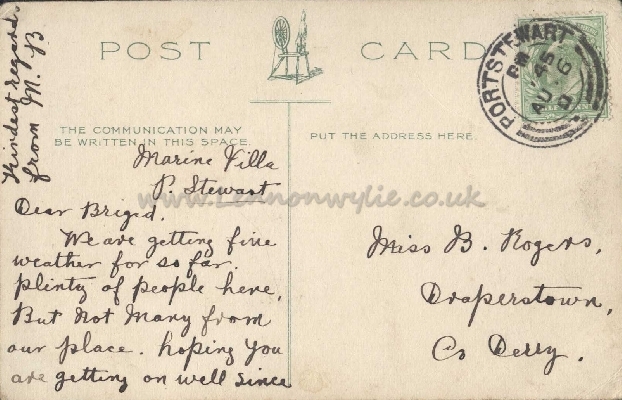 POST CARD
THE COMMUNICATION MAY
BE WRITTEN IN THIS SPACE.
PUT THE ADDRESS HERE.
PORTSTEWART
PM
45
AU 6
Marine Villa
P. Stewart
Dear Brigid.
We are getting fine
weather for so far.
plenty of people here,
But not many from
our place. hoping you
are getting on well since
Kindest regards
from M. B
Miss B. Rogers,
Draperstown,
Co Derry.
www.Lennonwylie.co.uk